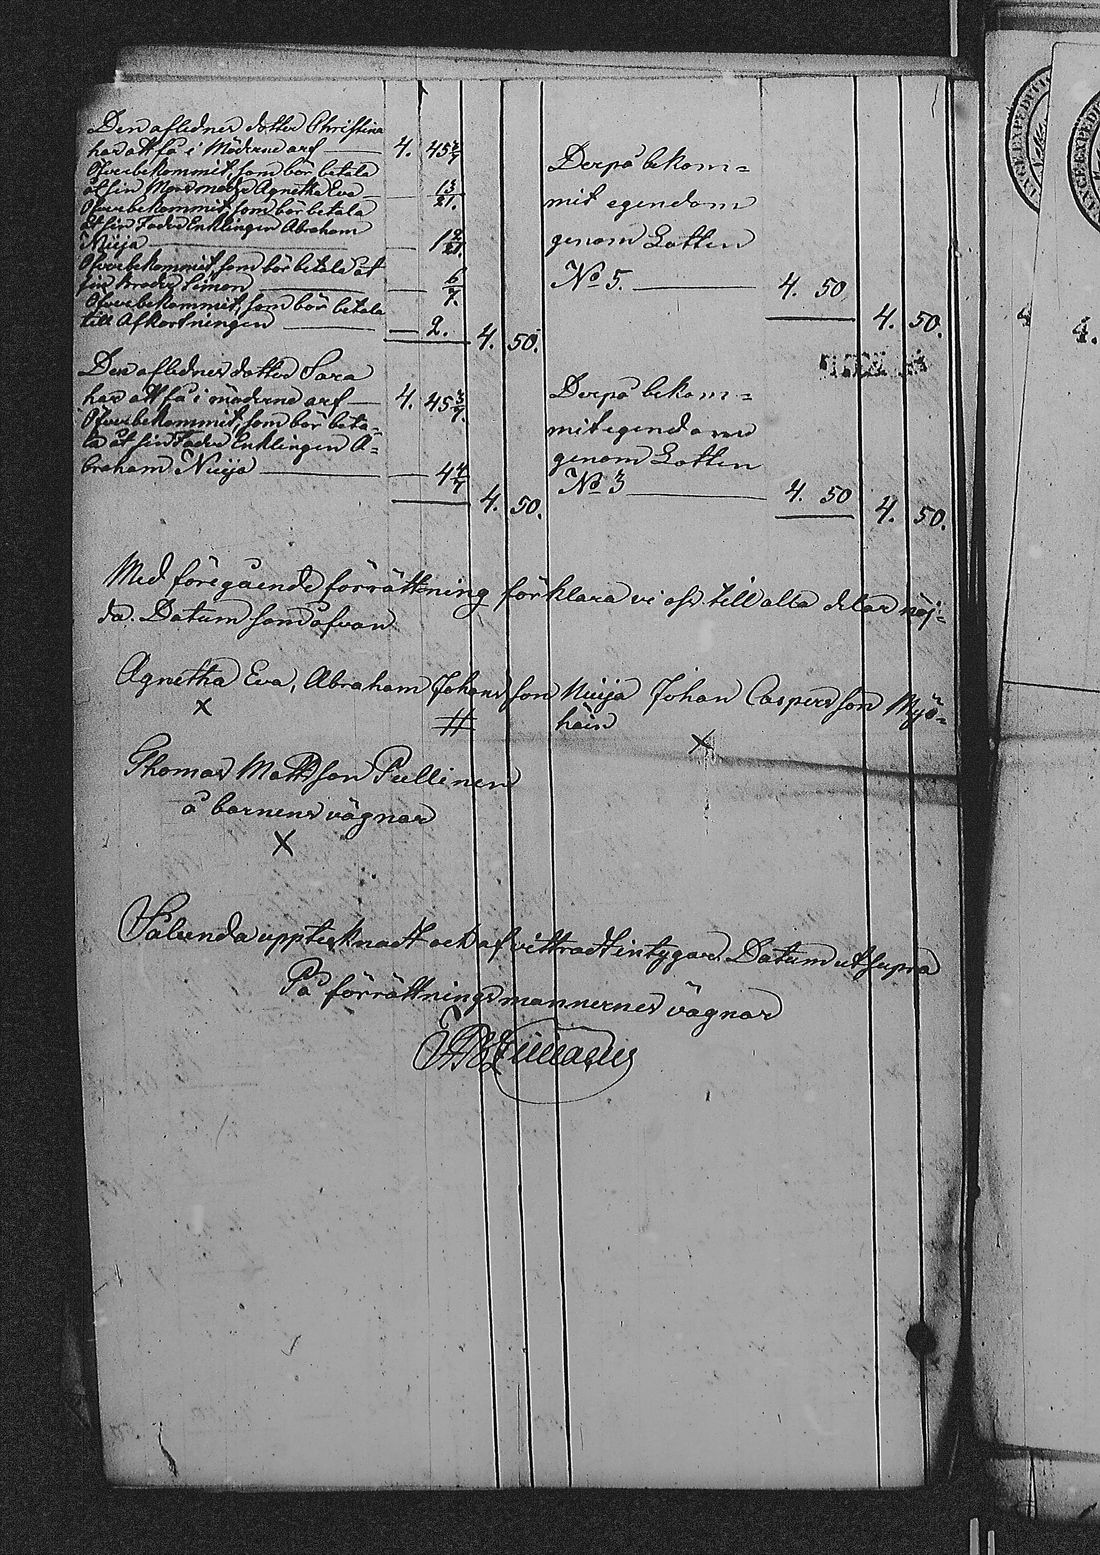 Den aflednes dotter Christina
har att få i Möderne arf — 4. 45 5/7
Öfverbekommit, som bör betala
åt sin Mormoder Agnetha Eva — 13/21.
Öfverbekommit, som bör betala
åt sin Fader Enklingen Abraham
Nuija — 1 2/21.
Öfverbekommit, som bör betala åt
sin broder Simon — 6/7.
Öfverbekommit, som bör betala
till Afkortningen — 2. 4. 50.
Derpå bekom=
mit egendom
genom Lotten
No 5. — 4. 50
4. 50.
Den aflednes dotter Sara
har att få i möderne arf — 4. 45 3/7.
Öfverbekommit, som bör beta=
la åt sin Fader Enklingen A=
braham Nuija — 4 4/7
4. 50.
Derpå bekom=
mit egendom
genom Lotten
No 3 — 4. 50
4. 50.
Med föregående förrättning förklara vi oss till alla delar nöj=
da. Datum som ofvan
Agnetha Eva, Abraham Johansson Nuija Johan Caspersson Myö=
häin
X # X
Thomas Mattsson Pullinen
å barnens vägnar
X
Sålunda upptecknadt och afvittradt intygar. Datum ut supra
På förrättningsmannernes vägnar
4
4.